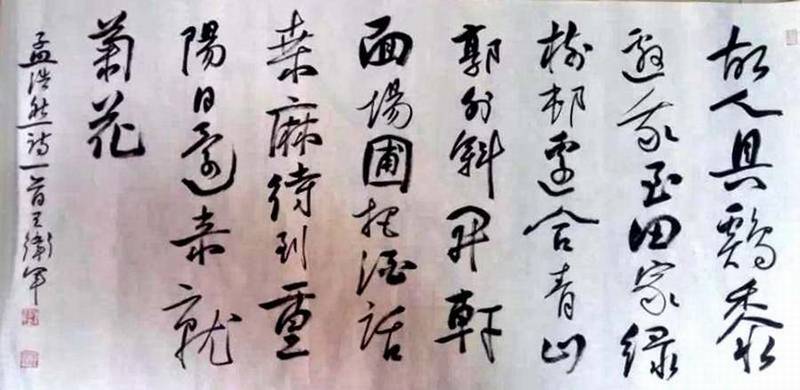 故人具鷄黍
邀我至田家緑
樹邨邊合青山
郭外斜開軒
面場圃把酒話
桑麻待到重
陽日還來就
菊花
孟浩然詩一首王衛軍